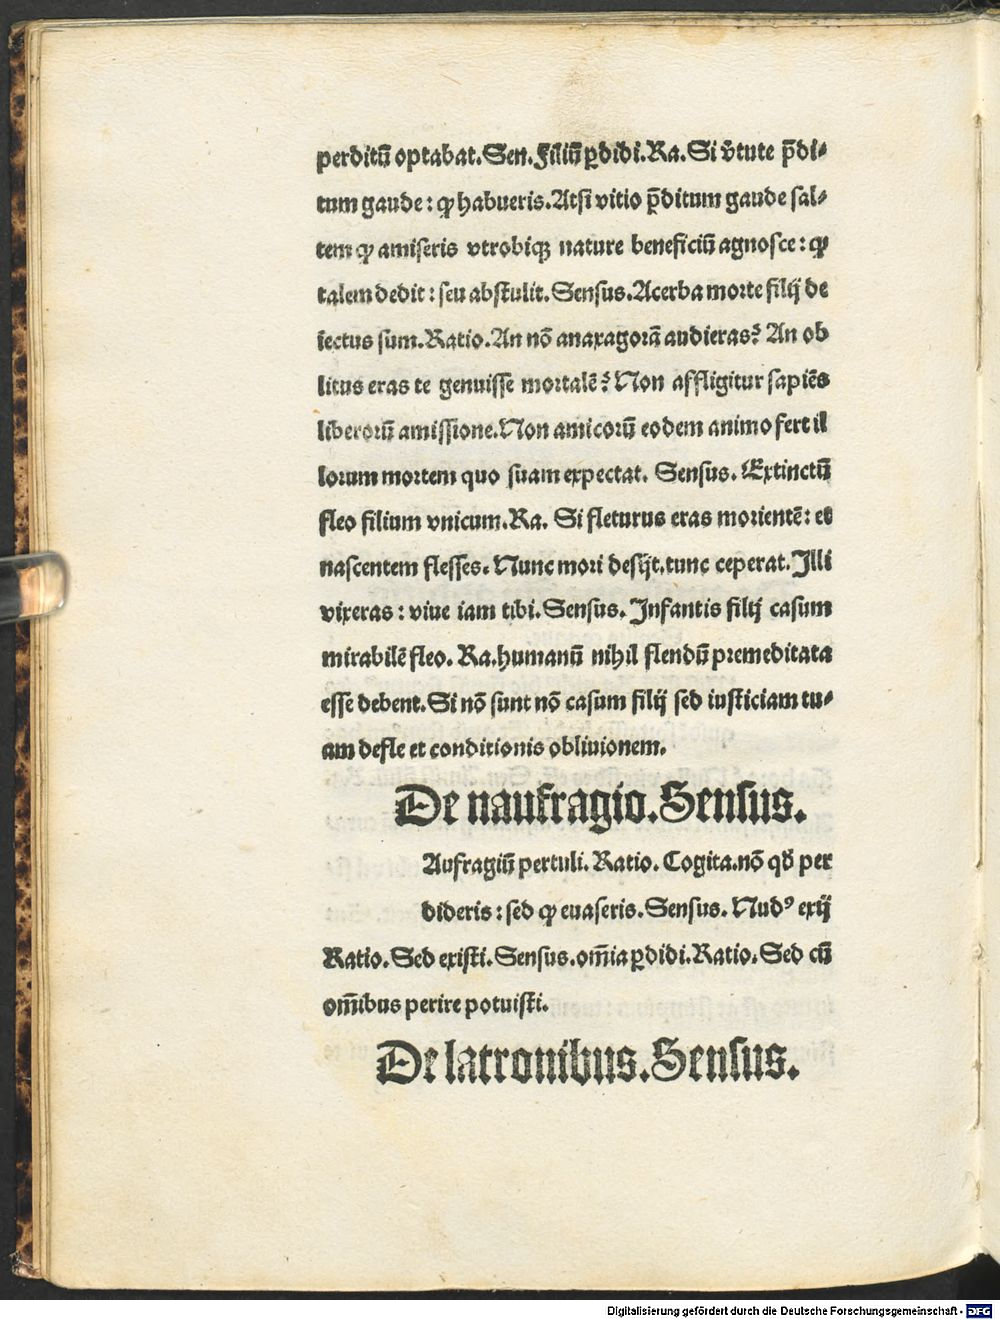 perditū optabat. Sen. Filiū ꝑdidi. Ra. Si v̄tute p̄di⸗
tum gaude: ꝙ habueris. Atsi vitio p̄ditum gaude sal⸗
tem ꝙ amiseris vtrobiqꝫ nature beneficiū agnosce: ꝙ
talem dedit: seu abstulit. Sensus. Acerba morte filij de
iectus sum. Ratio. An nō anaxagorā audieras? An ob
litus eras te genuisse mortalē? Non affligitur sapiēs
liberorū amissione. Non amicorū eodem animo fert il
lorum mortem quo suam expectat. Sensus. Extinctū
fleo filium vnicum. Ra. Si fleturus eras morientē: et
nascentem flesses. Nunc mori desijt. tunc ceperat. Illi
vixeras: viue iam tibi. Sensus. Infantis filij casum
mirabilē fleo. Ra. humanū nihil flendū premeditata
esse debent. Si nō sunt nō casum filij sed iusticiam tu⸗
am defle et conditionis obliuionem.
De naufragio. Sensus.
Aufragiū pertuli. Ratio. Cogita. nō qd̛ per
dideris: sed ꝙ euaseris. Sensus. Nudꝰ exij
Ratio. Sed existi. Sensus. om̄ia ꝑdidi. Ratio. Sed cū
om̄ibus perire potuisti.
De latronibus. Sensus.
Digitalisierung gefördert durch die Deutsche Forschungsgemeinschaft - DFG